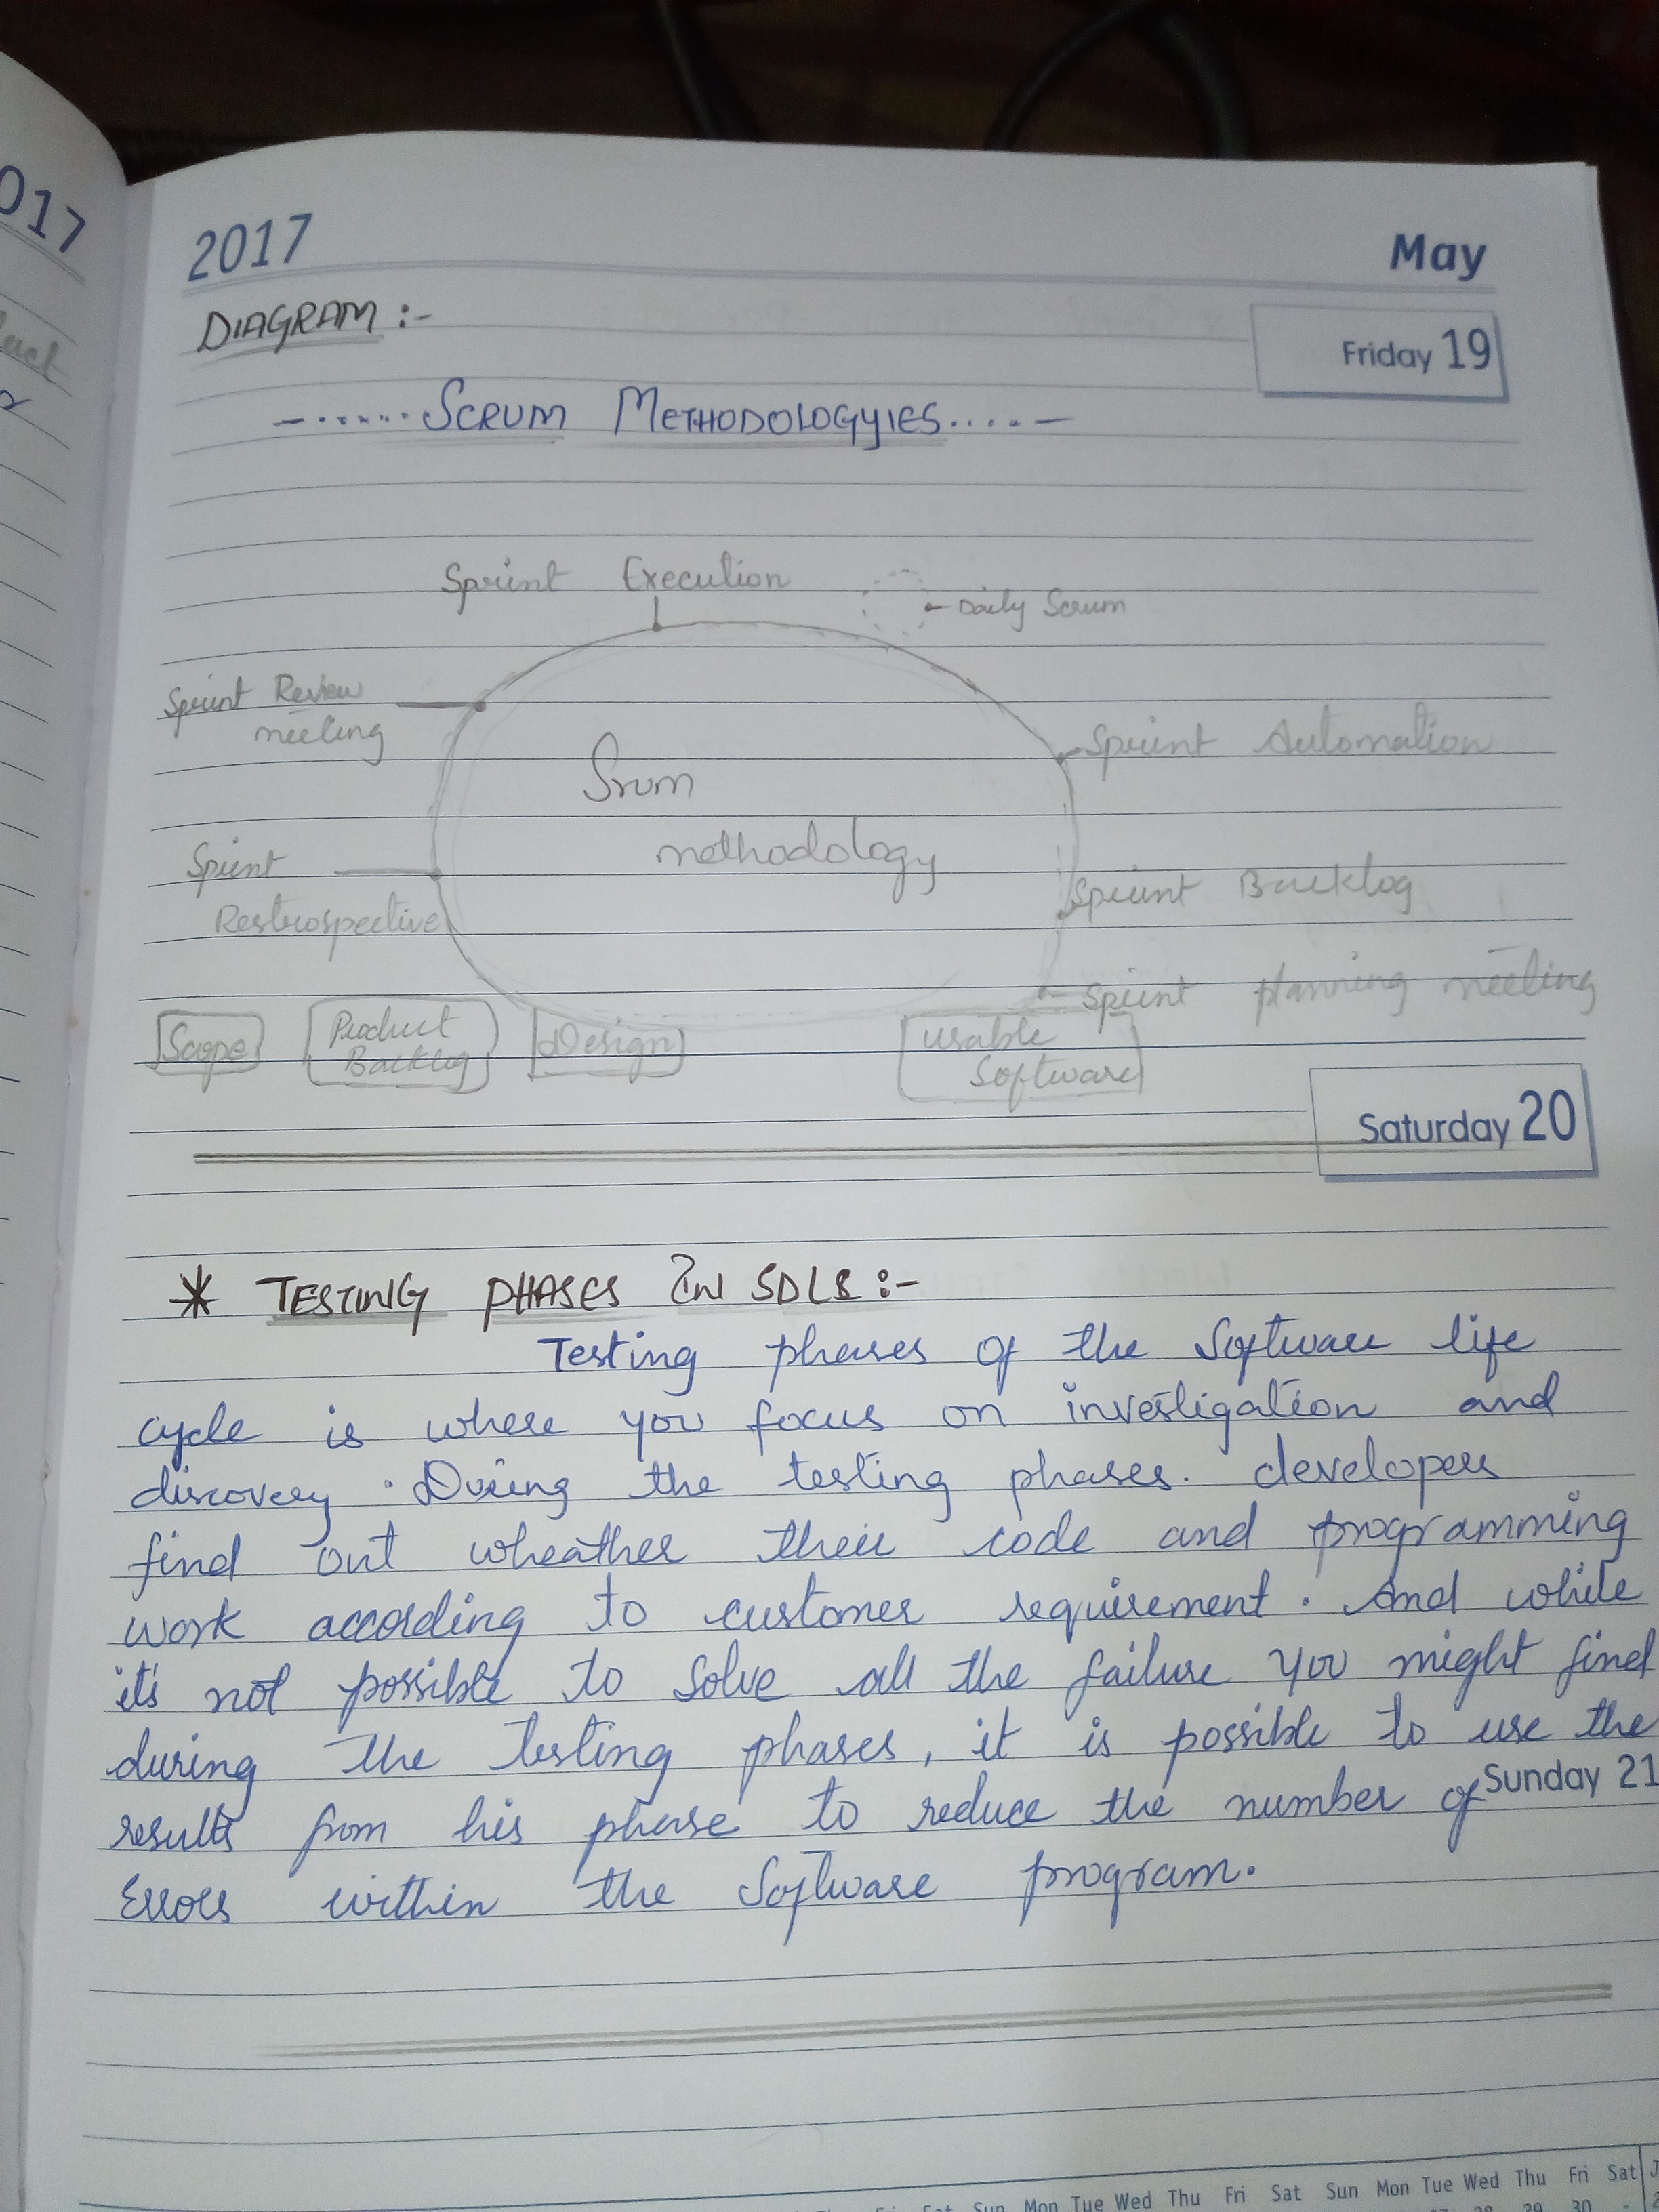 2017
May
DIAGRAM :-
Friday 19
-......SCRUM METHODOLOGYIES.....-
Sprint Execution
Daily Scrum
Sprint Review
meeting
Sprint Automation
Srum
methodology
Sprint
Restrospective
Sprint Backlog
Sprint planning meeting
Scope
Product
Backlog
Design
usable
Software
Saturday 20
* TESTING PHASES IN SDLS :-
Testing phases of the Software life
cycle is where you focus on investigation and
discovery. During the testing phases. developers
find out wheather their code and programming
work according to customer requirement. And while
it's not possible to solve all the failure you might find
during the testing phases, it is possible to use the
results from his phase to reduce the number of
Sunday 21
Errors within the Software program.
Sat Sun Mon Tue Wed Thu Fri Sat Sun Mon Tue Wed Thu Fri Sat
29 30
017